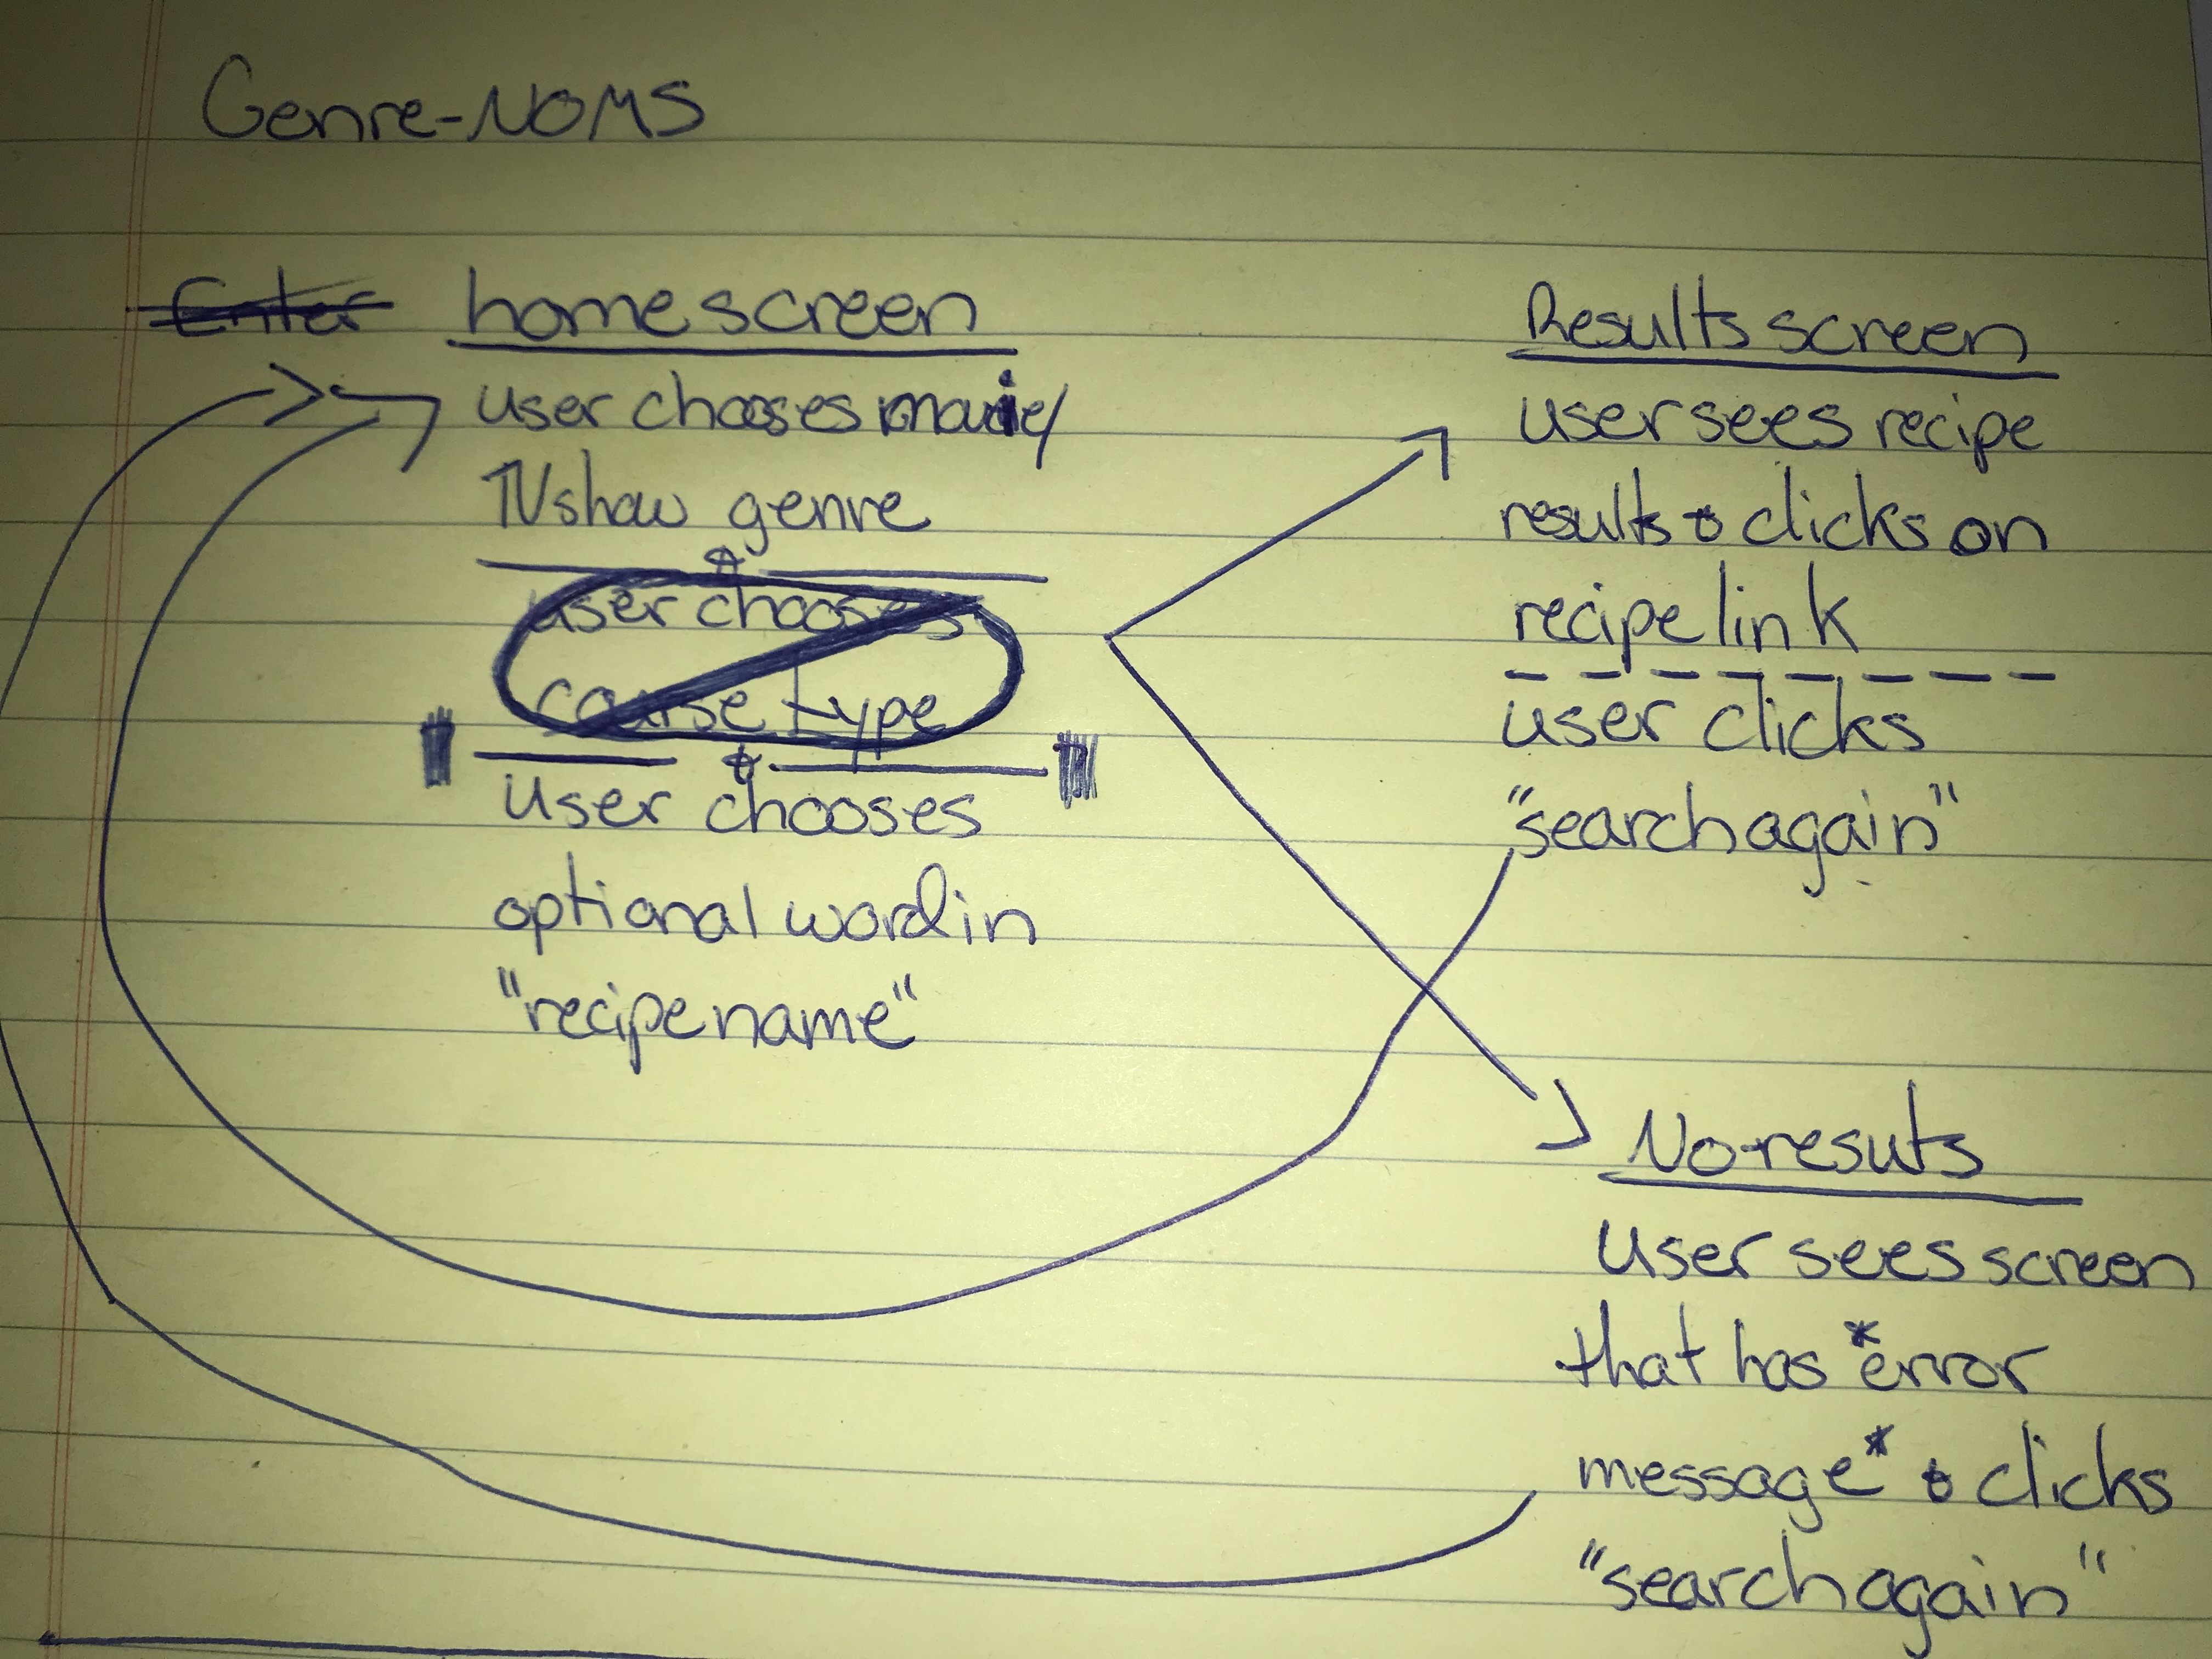 Genre-NOMS
Enter home screen
user chooses movie/
TV show genre
&
user chooses
course type
&
user chooses
optional word in
"recipe name"
Results screen
user sees recipe
results & clicks on
recipe link
user clicks
"search again"
No results
user sees screen
that has *error
message* & clicks
"search again"